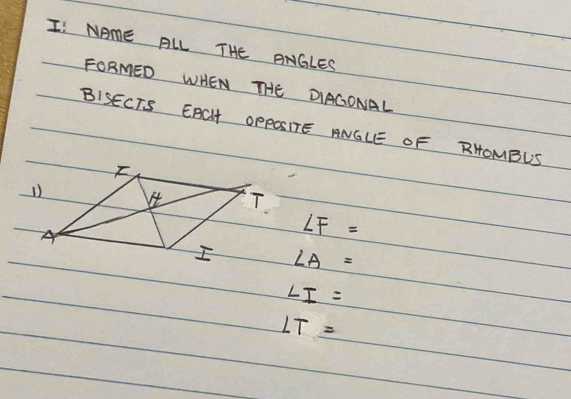 I: NAME ALL THE ANGLES
FORMED WHEN THE DIAGONAL
BISECTS EACH OPPOSITE ANGLE OF RHOMBUS
1)
F
H
T
A
I
∠F =
∠A =
∠I =
∠T =